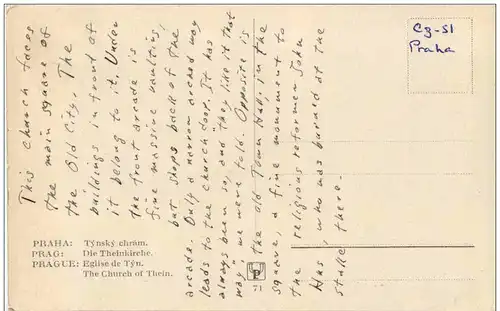 This church faces
the main square of
the Old City. The
buildings in front of
it belong to it. Under
the front arcade is
fine massive vaulting,
but shops back of the
arcade. Only a narrow arched way
leads to the church door. It has
always been so, and "they like it that
way", we were told. Opposite is
the old Town Hall, in the
square, a fine monument to
the religious reformer John
Hus, who was burned at the
stake there.
Cz-51
Praha
PRAHA: Týnský chrám.
PRAG: Die Theinkirche.
PRAGUE: Eglise de Týn.
The Church of Thein.
71